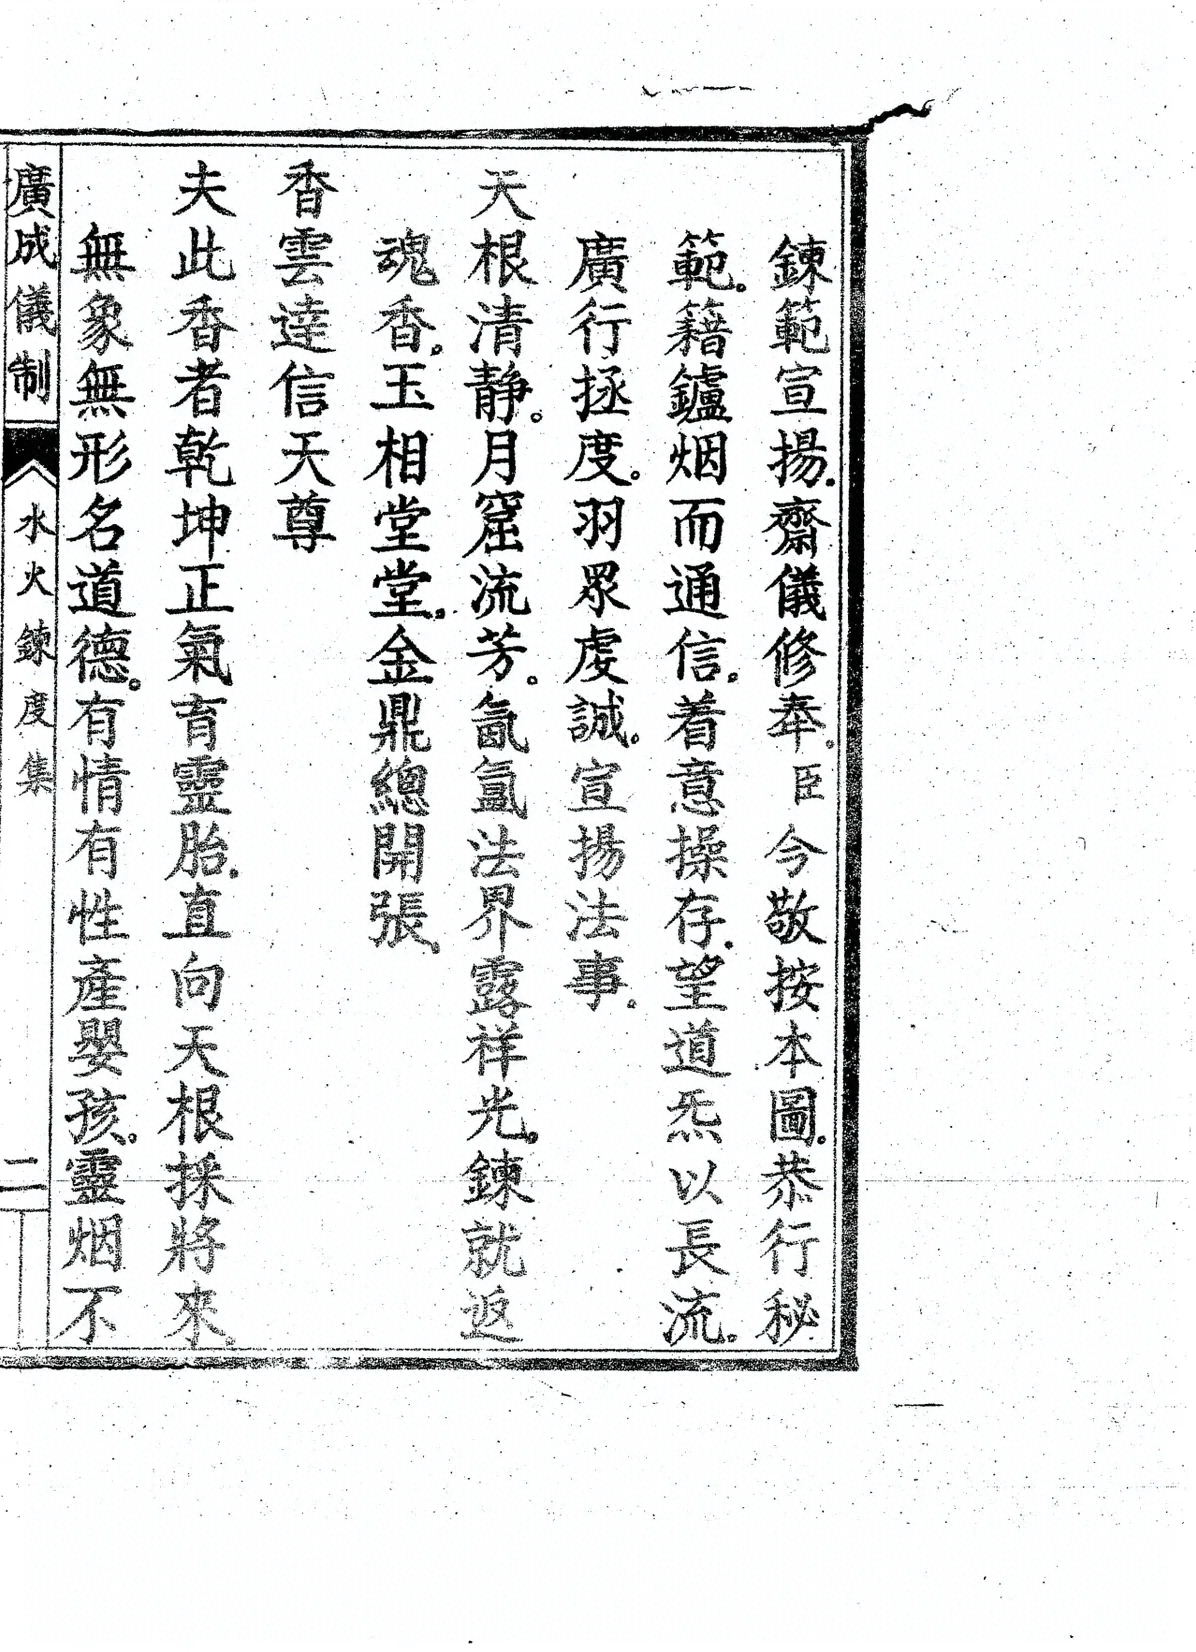 鍊範宣揚。齋儀修奉。臣今敬按本圖。恭行秘
範。籍鑪烟而通信。着意操存。望道炁以長流。
廣行拯度。羽眾虔誠。宣揚法事。
天根清静。月窟流芳。氤氳法界露祥光。鍊就返
魂香。玉相堂堂。金鼎總開張。
香雲達信天尊
夫此香者乾坤正氣育靈胎。直向天根採將來。
無象無形名道德。有情有性產嬰孩。靈烟不
廣成儀制 水火鍊度集 二